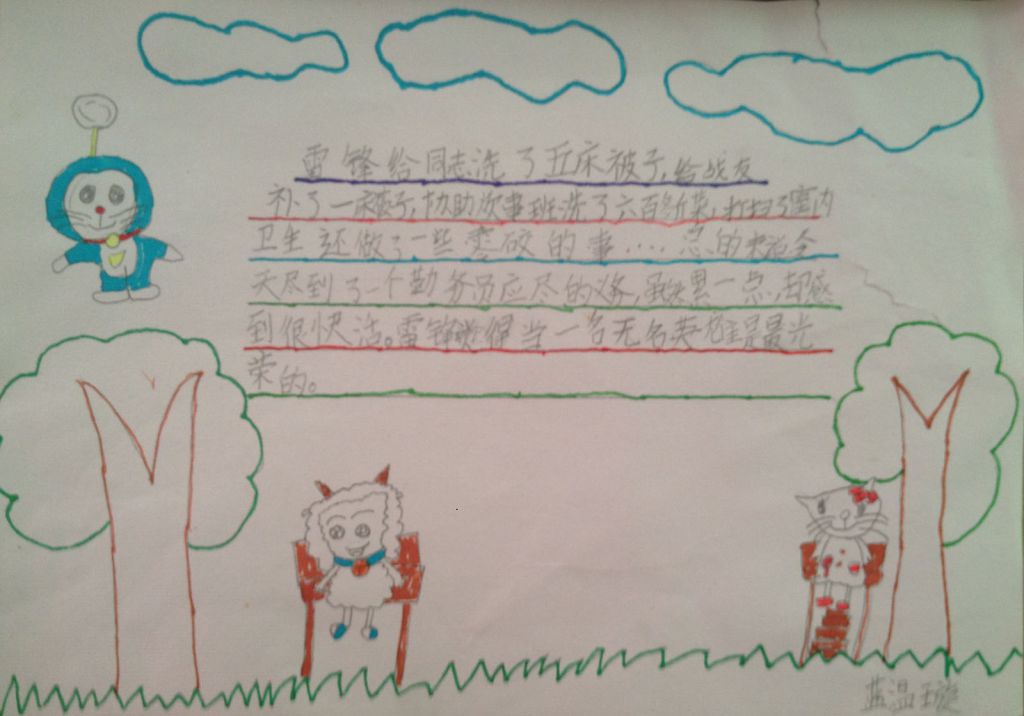 雷锋给同志洗了五床被子,给战友
补了一床裤子,协助炊事班洗了六百斤菜,打扫了室内
卫生还做了一些零碎的事....总的来说今
天尽到了一个勤务员应尽的义务,虽然累一点,却感
到很快活。雷锋觉得当一名无名英雄是最光
荣的。
蓝温璇